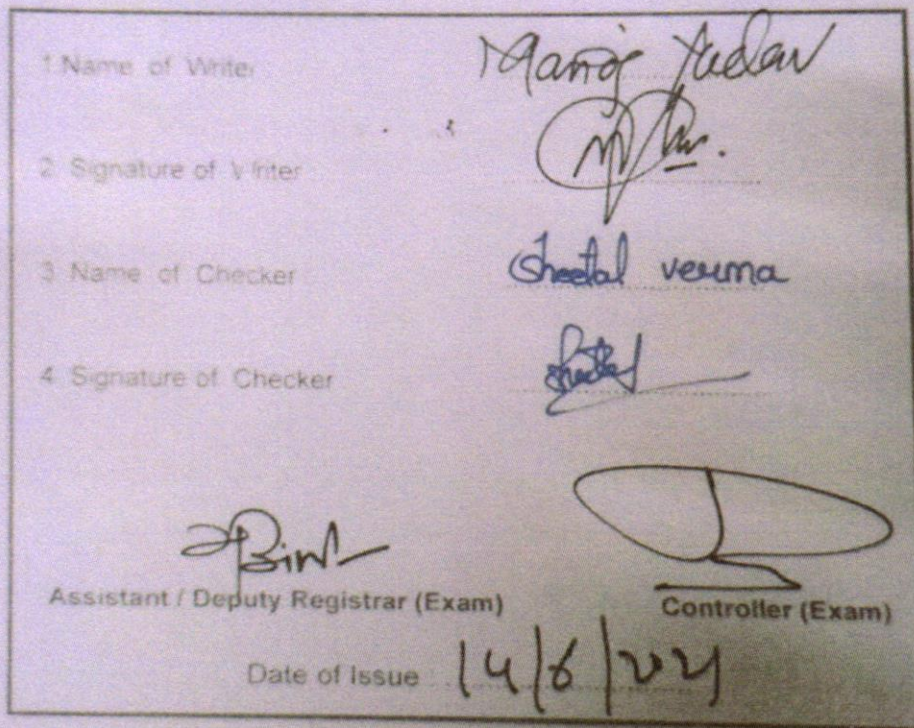 1 Name of Writer Manoj Yadav
2. Signature of Writer
3. Name of Checker Sheetal verma
4. Signature of Checker
Assistant / Deputy Registrar (Exam) Controller (Exam)
Date of Issue : 14/6/2021